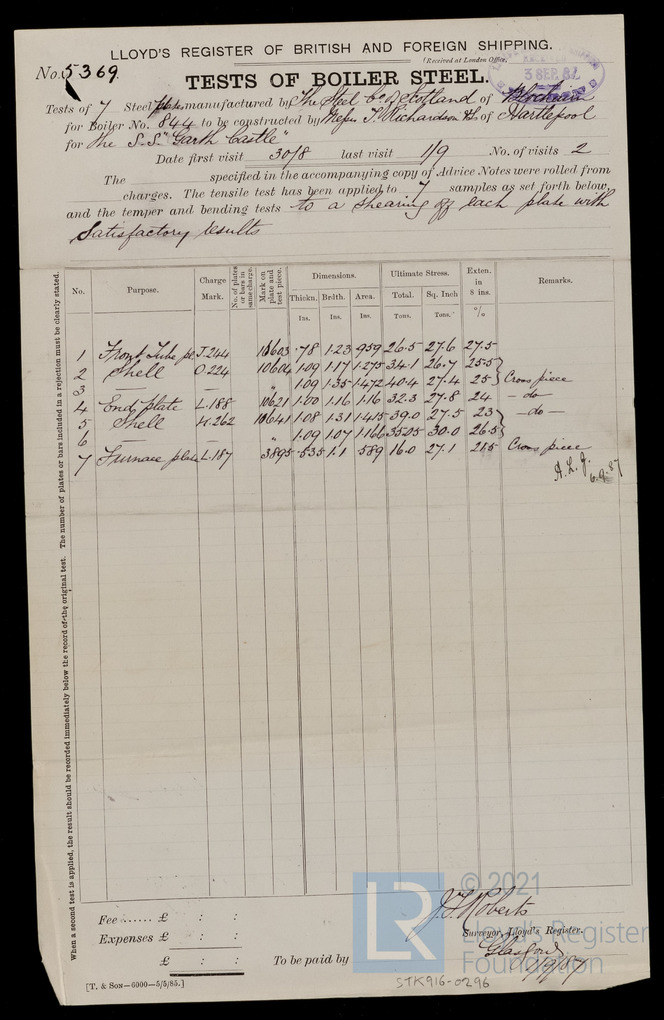 LLOYD'S REGISTER OF BRITISH AND FOREIGN SHIPPING.
(Received at London Office,
3 SEP. 87
No. 5369.
TESTS OF BOILER STEEL.
Tests of 7 Steel plates manufactured by The Steel Co. of Scotland of Blochairn
for Boiler No. 844 to be constructed by Messrs T. Richardson & Sons of Hartlepool
for The S.S. "Garth Castle"
Date first visit 30/8 last visit 1/9 No. of visits 2
The specified in the accompanying copy of Advice Notes were rolled from
charges. The tensile test has been applied to 7 samples as set forth below,
and the temper and bending tests to a shearing off each plate with
Satisfactory results
No. Purpose. Charge Mark. No. of plates or bars in same charge. Mark on plate and test piece. Dimensions. Ultimate Stress. Exten. in 8 ins. Remarks.
Thickn. Brdth. Area. Total. Sq. Inch
Ins. Ins. Ins. Tons. Tons. %
1 Front Tube pl J.244 10603 .78 1.23 .959 26.5 27.6 27.5
2 Shell O.224 10604 1.09 1.17 1.275 34.1 26.7 25.5
3 — " 1.09 1.35 1.472 40.4 27.4 25 Cross piece
4 End plate L.188 10621 1.00 1.16 1.16 32.3 27.8 24 — do —
5 Shell H.262 10641 1.08 1.31 1.415 39.0 27.5 23 — do —
6 — " 1.09 1.07 1.166 35.05 30.0 26.5
7 Furnace plate L.187 3895 .535 1.1 .589 16.0 27.1 21.5 Cross piece
6.9.87
When a second test is applied, the result should be recorded immediately below the record of the original test. The number of plates or bars included in a rejection must be clearly stated.
Fee ...... £ : :
Expenses £ : :
£ : :
To be paid by
J. T. Roberts
Surveyor, Lloyd's Register.
Glasgow
1/9/87
[T. & SON—6000—5/5/85.]
STK916-0296
LR
© 2021
Lloyd's Register
Foundation